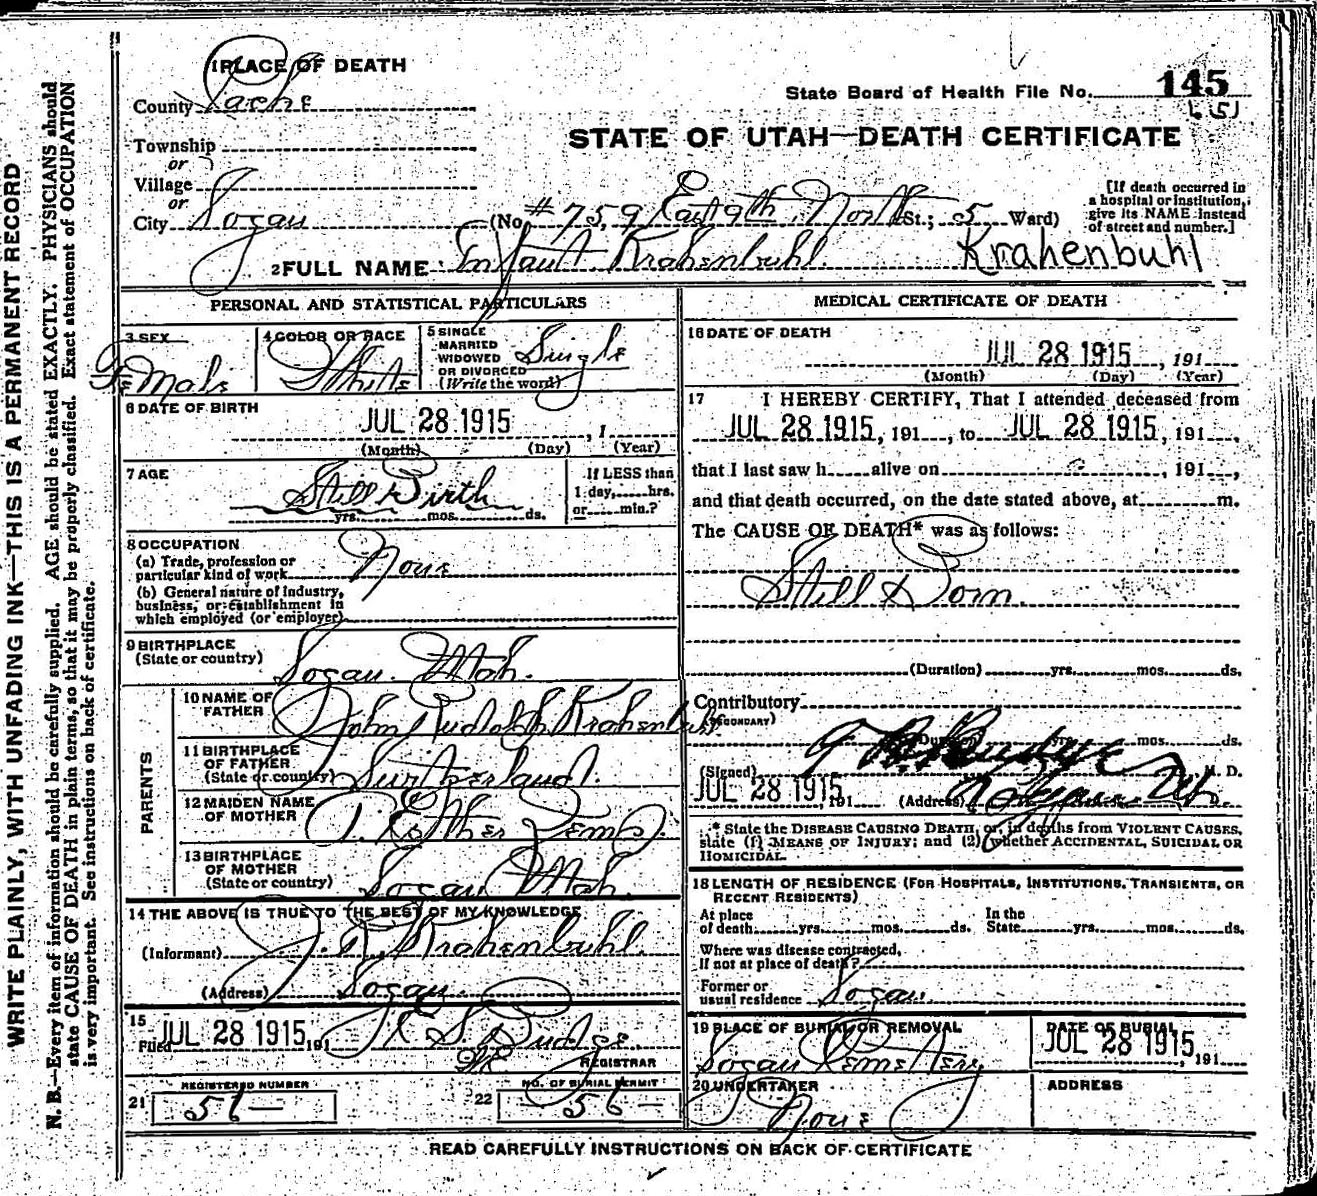 1 PLACE OF DEATH
County Cache
State Board of Health File No. 145
Township
or
Village
or
City Logan
STATE OF UTAH—DEATH CERTIFICATE
(No. #759 East 9th North St.; 5 Ward)
[If death occurred in
a hospital or institution,
give its NAME instead
of street and number.]
2 FULL NAME Infant Krahenbuhl. Krahenbuhl
PERSONAL AND STATISTICAL PARTICULARS
3 SEX
Female
4 COLOR OR RACE
White
5 SINGLE
MARRIED
WIDOWED
OR DIVORCED
(Write the word)
Single
6 DATE OF BIRTH
JUL 28 1915, 1
(Month) (Day) (Year)
7 AGE
Still Birth
yrs. mos. ds.
If LESS than
1 day, hrs.
or min.?
8 OCCUPATION
(a) Trade, profession or
particular kind of work None
(b) General nature of Industry,
business, or establishment in
which employed (or employer)
9 BIRTHPLACE
(State or country)
Logan Utah.
PARENTS
10 NAME OF
FATHER
John Rudolph Krahenbuhl
11 BIRTHPLACE
OF FATHER
(State or country)
Switzerland.
12 MAIDEN NAME
OF MOTHER
Esther
13 BIRTHPLACE
OF MOTHER
(State or country)
Logan Utah.
14 THE ABOVE IS TRUE TO THE BEST OF MY KNOWLEDGE
(Informant) J. R. Krahenbuhl.
(Address) Logan.
15
Filed JUL 28 1915, 191
Budge
REGISTRAR
REGISTERED NUMBER
21 56—
NO. OF BURIAL PERMIT
22 56—
MEDICAL CERTIFICATE OF DEATH
16 DATE OF DEATH
JUL 28 1915, 191
(Month) (Day) (Year)
17 I HEREBY CERTIFY, That I attended deceased from
JUL 28 1915, 191, to JUL 28 1915, 191,
that I last saw h alive on , 191,
and that death occurred, on the date stated above, at m.
The CAUSE OF DEATH* was as follows:
Still Born.
(Duration) yrs. mos. ds.
Contributory
(SECONDARY)
(Duration) yrs. mos. ds.
(Signed) Budge M. D.
JUL 28 1915, 191 (Address) Logan Ut.
* State the DISEASE CAUSING DEATH, or, in deaths from VIOLENT CAUSES,
state (1) MEANS OF INJURY; and (2) whether ACCIDENTAL, SUICIDAL OR
HOMICIDAL.
18 LENGTH OF RESIDENCE (FOR HOSPITALS, INSTITUTIONS, TRANSIENTS, OR
RECENT RESIDENTS)
At place
of death yrs. mos. ds.
In the
State yrs. mos. ds.
Where was disease contracted,
If not at place of death?
Former or
usual residence Logan.
19 PLACE OF BURIAL OR REMOVAL
Logan Cemetery
DATE OF BURIAL
JUL 28 1915, 191
20 UNDERTAKER
None
ADDRESS
READ CAREFULLY INSTRUCTIONS ON BACK OF CERTIFICATE
WRITE PLAINLY, WITH UNFADING INK—THIS IS A PERMANENT RECORD
N. B.—Every item of information should be carefully supplied. AGE should be stated EXACTLY. PHYSICIANS should
state CAUSE OF DEATH in plain terms, so that it may be properly classified. Exact statement of OCCUPATION
is very important. See instructions on back of certificate.